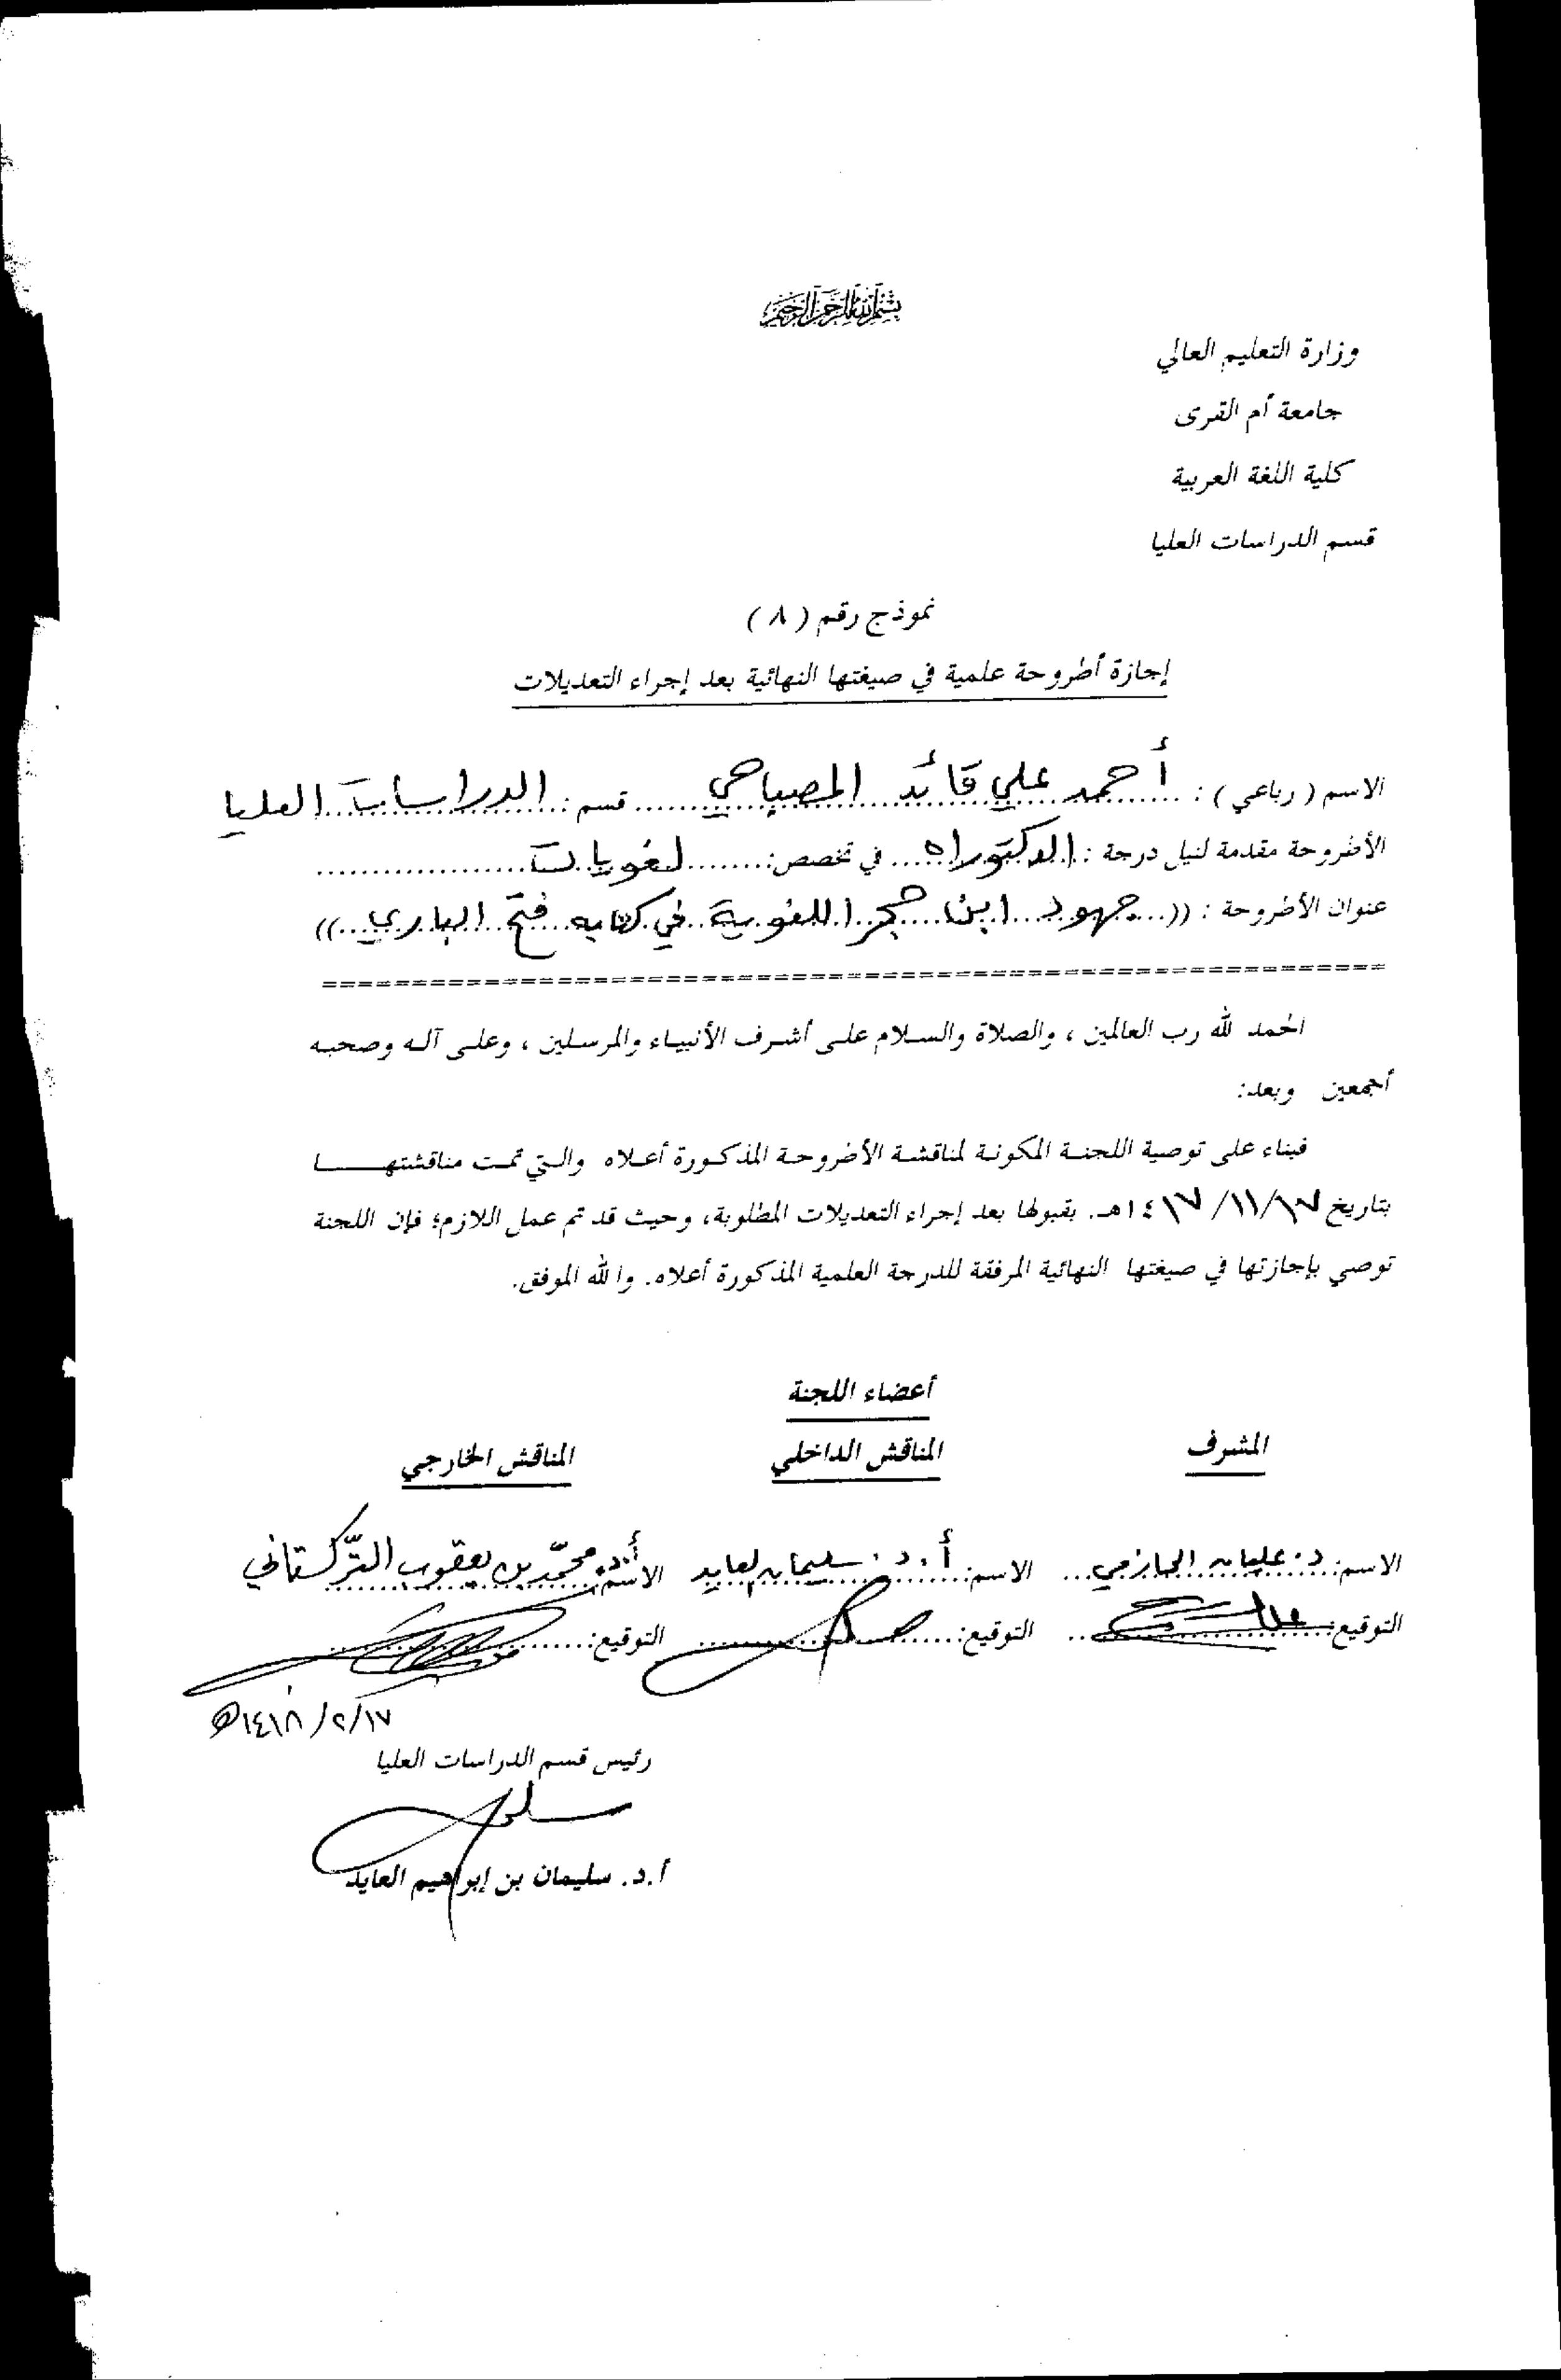 بسم الله الرحمن الرحيم
وزارة التعليم العالي
جامعة أم القرى
كلية اللغة العربية
قسم الدراسات العليا
نموذج رقم ( ٨ )
إجازة أطروحة علمية في صيغتها النهائية بعد إجراء التعديلات
الاسم ( رباعي ) : أحمد علي قائد المصباحي قسم : الدراسات العليا
الأطروحة مقدمة لنيل درجة : الدكتوراه في تخصص : لغويات
عنوان الأطروحة : (( جهود ابن حجر اللغوية في كتابه فتح الباري ))
الحمد لله رب العالمين ، والصلاة والسلام على أشرف الأنبياء والمرسلين ، وعلى آله وصحبه
أجمعين وبعد:
فبناء على توصية اللجنة المكونة لمناقشة الأطروحة المذكورة أعلاه والتي تمت مناقشتها
بتاريخ ١٧/ ١١/ ١٤١٧هـ. بقبولها بعد إجراء التعديلات المطلوبة، وحيث قد تم عمل اللازم؛ فإن اللجنة
توصي بإجازتها في صيغتها النهائية المرفقة للدرجة العلمية المذكورة أعلاه. والله الموفق.
أعضاء اللجنة
المشرف المناقش الداخلي المناقش الخارجي
الاسم: د. عليان الحازمي الاسم: أ.د. سليمان العايد الاسم: أ.د. محمّد بن يعقوب التّركستاني
التوقيع: التوقيع: التوقيع:
١٧/ ٢/ ١٤١٨هـ
رئيس قسم الدراسات العليا
أ.د. سليمان بن إبراهيم العايد